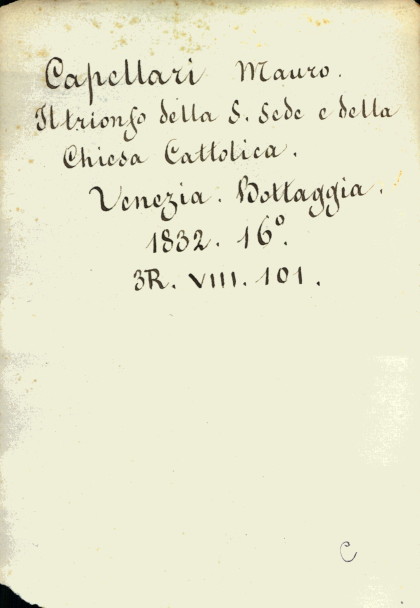 Capellari Mauro.
Il trionfo della S. Sede e della
Chiesa Cattolica.
Venezia. Bottaggia.
1832. 16º.
3R. VIII. 101.
C